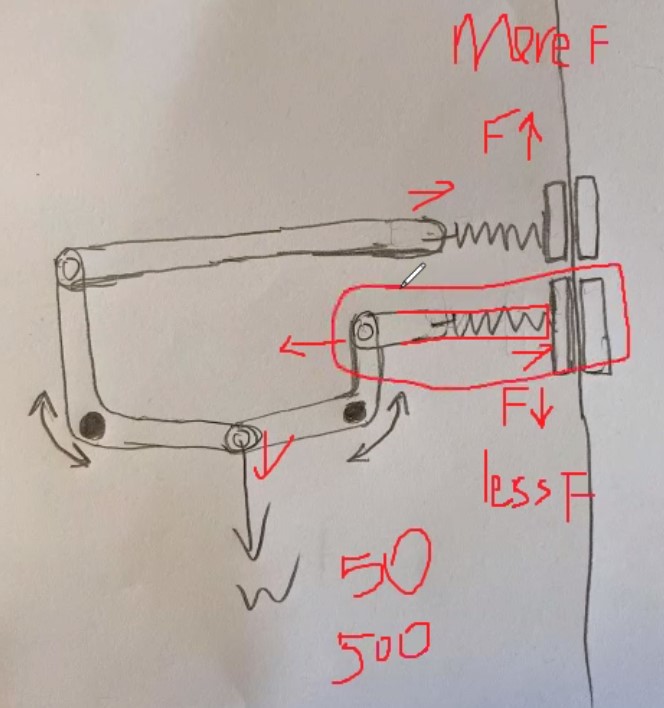 More F
F↑
F↓
less F
W
50
500